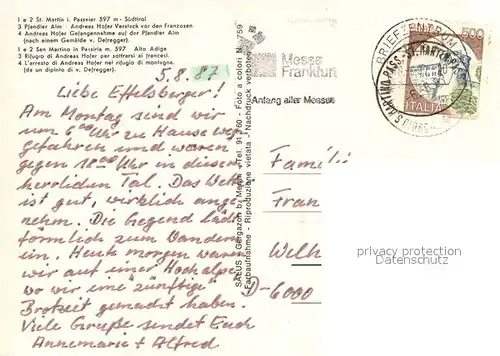 1 e 2 St. Martin i. Passeier 597 m - Südtirol
3 Pfandler Alm : Andreas Hofer Versteck vor den Franzosen
4 Andreas Hofer Gefangennahme auf der Pfandler Alm
(nach einem Gemälde v. Defregger).
1 e 2 San Martino in Passiria m. 597 Alto Adige
3 Rifugio di Andreas Hofer per sottrarsi ai francesi.
4 L'arresto di Andreas Hofer nel rifugio di montagna.
(da un dipinto di v. Defregger).
5.8.87
Liebe Effelsberger!
Am Montag sind wir
um 6 00 Uhr zu Hause weg
gefahren und waren
gegen 18 00 Uhr in diesem
herrlichen Tal. Das Wetter
ist gut, wirklich ange-
nehm. Die Gegend lädt
förmlich zum Wandern
ein. Heute morgen waren
wir auf einer Hochalpe
wo wir eine zünftige
Brotzeit gemacht haben.
Viele Grüße sendet Euch
Annemarie + Alfred
Foto a colori N.
Farbaufnahme - Riproduzione vietata - Nachdruck verboten
Messe
Frankfurt
Anfang aller Messen
BRIEFZENTRUM
500
ITALIA
Famili
Fran
Wilh
D-6000
privacy protection
AnsichtskartenVersand.com